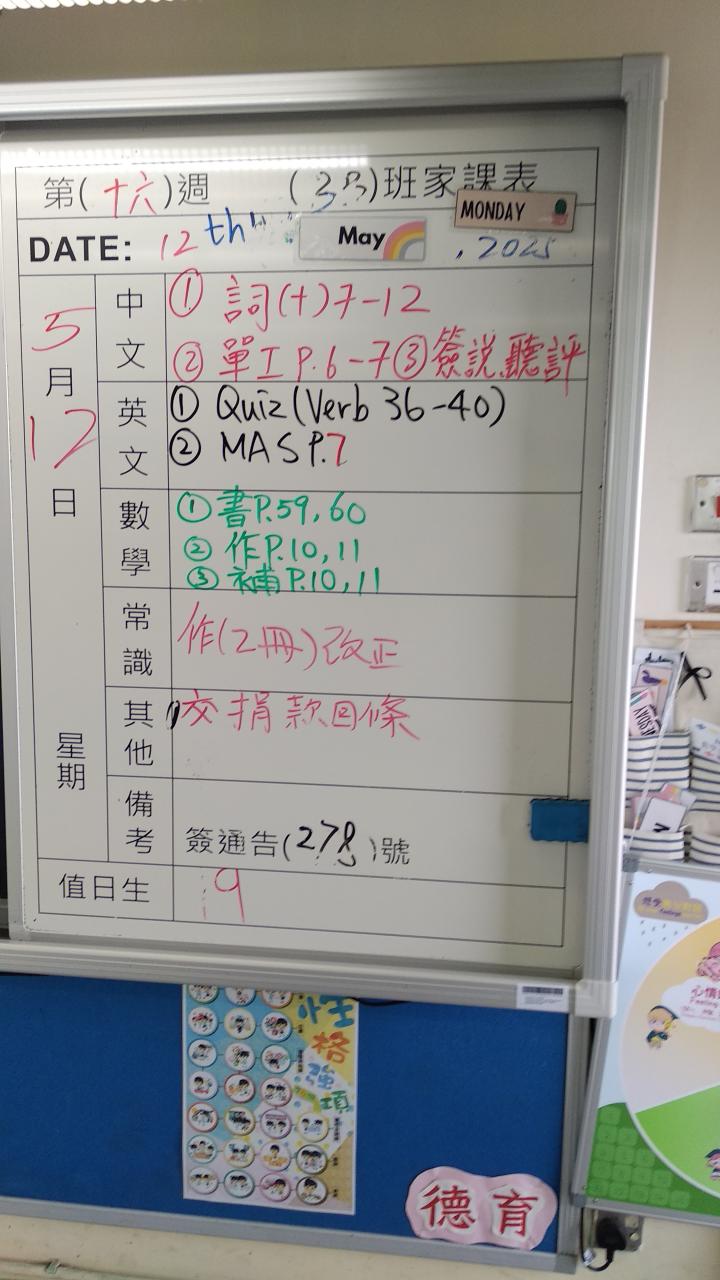 第(十六)週 (3B)班家課表
MONDAY
DATE: 12th May , 2025
5月12日
星期
中文
① 詞(十)7-12
② 單工 P.6-7 ③ 簽説聽評
英文
① Quiz (Verb 36-40)
② MAS P.7
數學
① 書P.59,60
② 作P.10,11
③ 補P.10,11
常識
作(2冊)改正
其他
交捐款回條
備考
簽通告(278)號
值日生
9
性格強項
德育